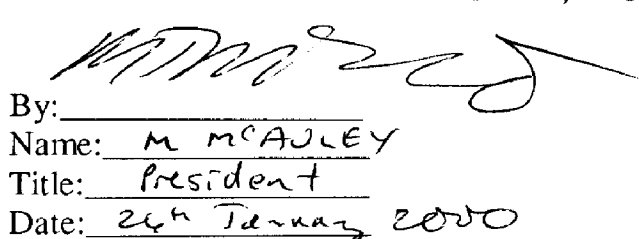 By:
Name: M McAULEY
Title: President
Date: January 2000